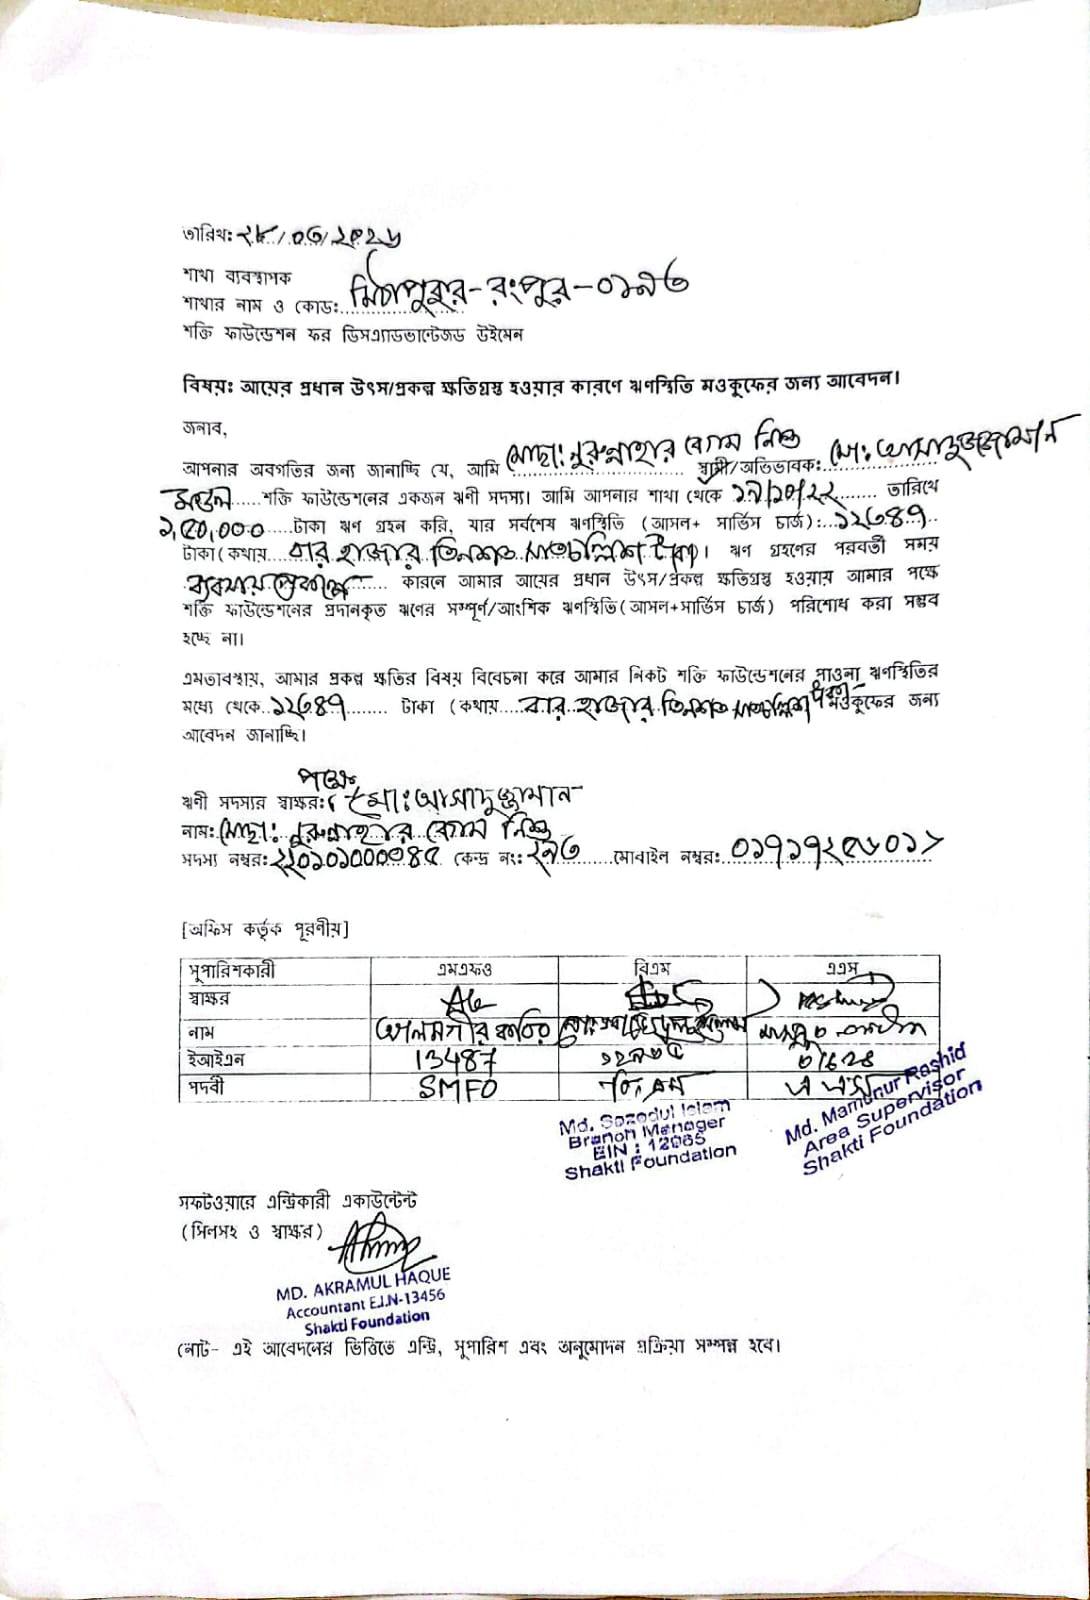 তারিখ: ২৮/০৩/২০২৬
শাখা ব্যবস্থাপক
শাখার নাম ও কোড: মিঠাপুকুর-রংপুর-০১৯৩
শক্তি ফাউন্ডেশন ফর ডিসএ্যাডভান্টেজড উইমেন
বিষয়: আয়ের প্রধান উৎস/প্রকল্প ক্ষতিগ্রস্ত হওয়ার কারণে ঋণস্থিতি মওকুফের জন্য আবেদন।
জনাব,
আপনার অবগতির জন্য জানাচ্ছি যে, আমি মোছা: নুরুন্নাহার বেগম নিশু স্বামী/অভিভাবক: মো: আসাদুজ্জামান
মন্ডল শক্তি ফাউন্ডেশনের একজন ঋণী সদস্য। আমি আপনার শাখা থেকে ১৯/১০/২২ তারিখে
১,৫০,০০০ টাকা ঋণ গ্রহন করি, যার সর্বশেষ ঋণস্থিতি (আসল+ সার্ভিস চার্জ): ১২৩৪৭
টাকা(কথায় বার হাজার তিনশত সাতচল্লিশ টাকা)। ঋণ গ্রহণের পরবর্তী সময়
ব্যবসায় কারনে আমার আয়ের প্রধান উৎস/প্রকল্প ক্ষতিগ্রস্ত হওয়ায় আমার পক্ষে
শক্তি ফাউন্ডেশনের প্রদানকৃত ঋণের সম্পূর্ণ/আংশিক ঋণস্থিতি(আসল+সার্ভিস চার্জ) পরিশোধ করা সম্ভব
হচ্ছে না।
এমতাবস্থায়, আমার প্রকল্প ক্ষতির বিষয় বিবেচনা করে আমার নিকট শক্তি ফাউন্ডেশনের পাওনা ঋণস্থিতির
মধ্যে থেকে ১২৩৪৭ টাকা (কথায় বার হাজার তিনশত সাতচল্লিশ টাকা মওকুফের জন্য
আবেদন জানাচ্ছি।
পক্ষে
ঋণী সদস্যর স্বাক্ষর: মো: আসাদুজ্জামান
নাম: মোছা: নুরুন্নাহার বেগম নিশু
সদস্য নম্বর: ২২০১০১০০০০৪৫ কেন্দ্র নং: ২৯৩ মোবাইল নম্বর: ০১৭১৭২৫৬০১৮
[অফিস কর্তৃক পূরণীয়]
সুপারিশকারী এমএফও বিএম এএস
স্বাক্ষর
নাম আলমগীর কবির
ইআইএন 13487 ১২৯৬৫
পদবী SMFO বি.এম এ এস
Md. Sozodul Islam
Branch Manager
EIN : 12965
Shakti Foundation
Md. Mamunur Rashid
Area Supervisor
Shakti Foundation
সফটওয়ারে এন্ট্রিকারী একাউন্টেন্ট
(সিলসহ ও স্বাক্ষর)
MD. AKRAMUL HAQUE
Accountant E.I.N-13456
Shakti Foundation
নোট- এই আবেদনের ভিত্তিতে এন্ট্রি, সুপারিশ এবং অনুমোদন প্রক্রিয়া সম্পন্ন হবে।